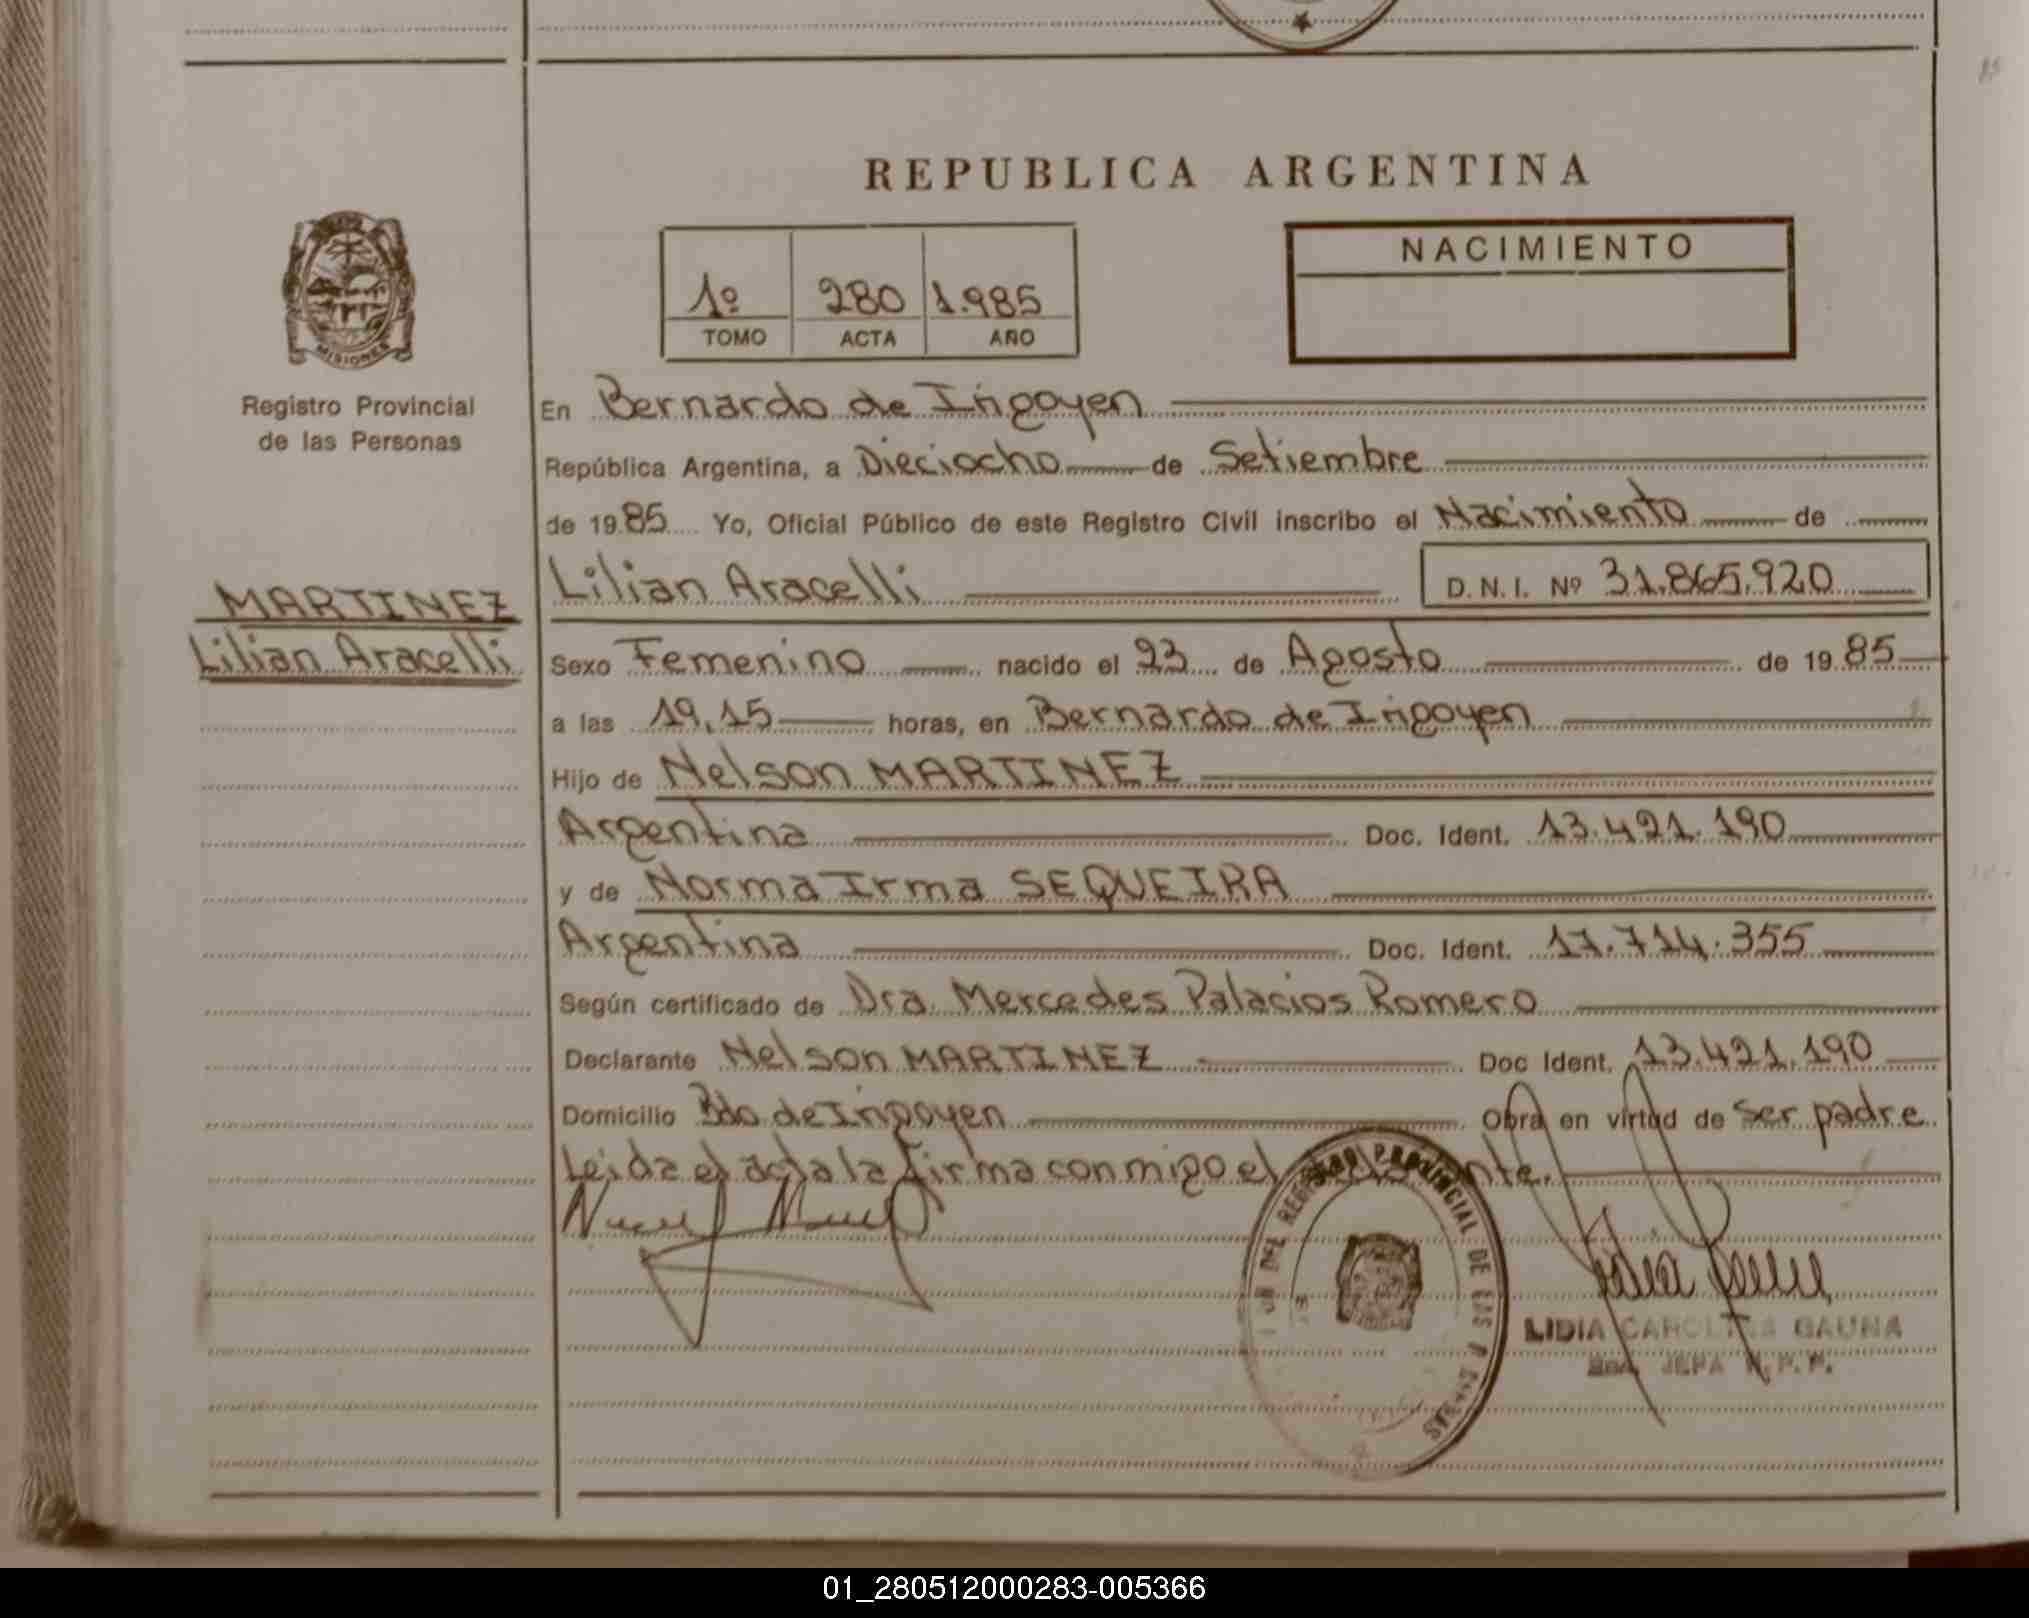 REPUBLICA ARGENTINA
MISIONES
Registro Provincial
de las Personas
MARTINEZ
Lilian Aracelli
1º 280 1.985
TOMO ACTA AÑO
NACIMIENTO
En Bernardo de Irigoyen
República Argentina, a Dieciocho de Setiembre
de 1985 Yo, Oficial Público de este Registro Civil inscribo el Nacimiento de
Lilian Aracelli D.N.I. Nº 31.865.920
Sexo Femenino nacido el 23 de Agosto de 1985
a las 19,15 horas, en Bernardo de Irigoyen
Hijo de Nelson MARTINEZ
Argentina Doc. Ident. 13.421.190
y de Norma Irma SEQUEIRA
Argentina Doc. Ident. 17.714.355
Según certificado de Dra. Mercedes Palacios Romero
Declarante Nelson MARTINEZ Doc Ident. 13.421.190
Domicilio Bdo de Irigoyen Obra en virtud de ser padre
Leida el acta la firma conmigo el
DEL REGISTRO PROVINCIAL DE LAS PERSONAS
LIDIA CAROLINA GAUNA
01_280512000283-005366